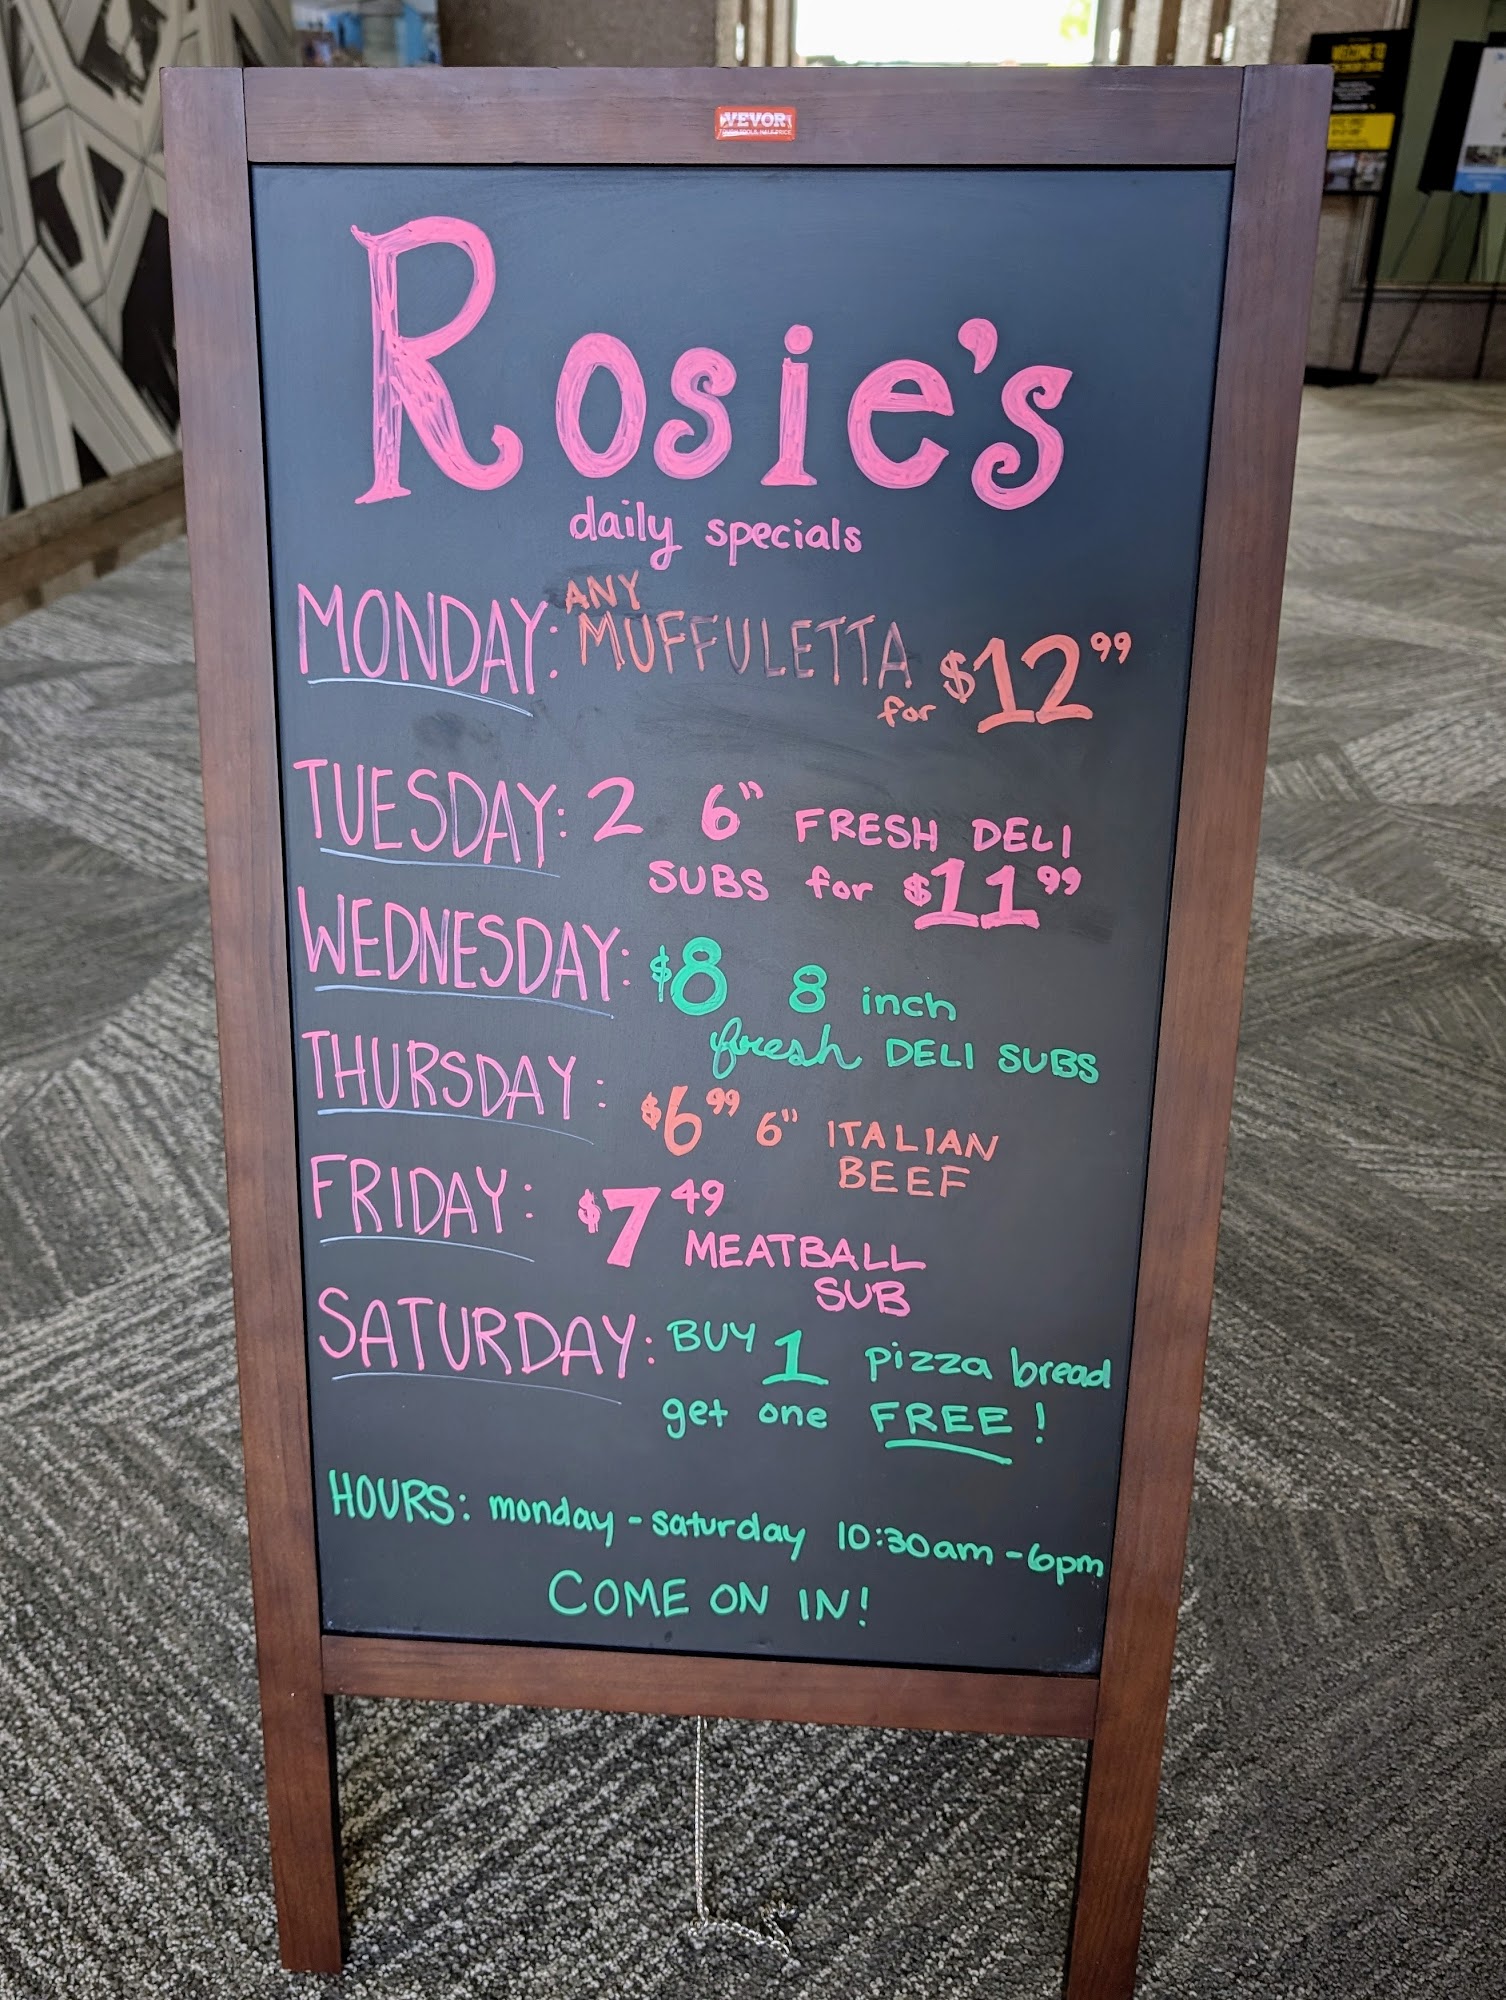 VEVOR
Rosie's
daily specials
MONDAY: ANY MUFFULETTA
for $12.99
TUESDAY: 2 6" FRESH DELI
SUBS for $11.99
WEDNESDAY: $8 8 inch
fresh DELI SUBS
THURSDAY: $6.99 6" ITALIAN
BEEF
FRIDAY: $7.49 MEATBALL
SUB
SATURDAY: BUY 1 pizza bread
get one FREE!
HOURS: monday - saturday 10:30am - 6pm
COME ON IN!
WELCOME TO